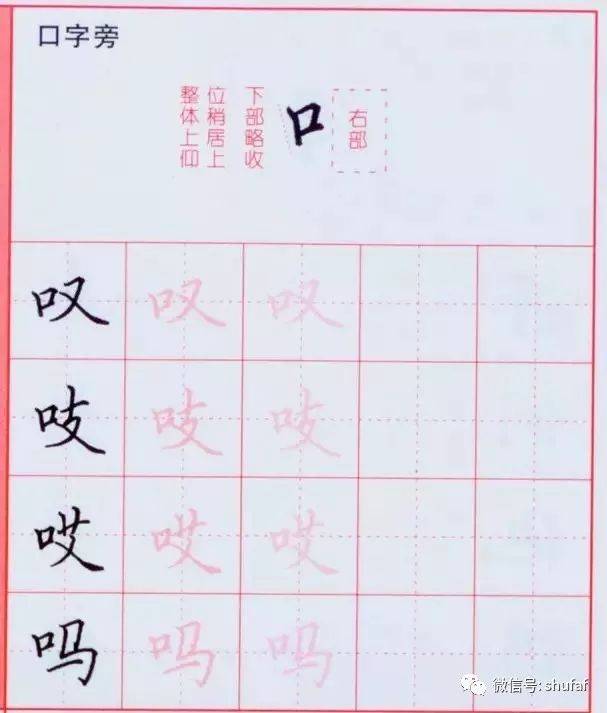 口字旁
下部略收
位稍居上
整体上仰
口
右部
叹 叹 叹
吱 吱 吱
哎 哎 哎
吗 吗 吗
微信号: shufaf